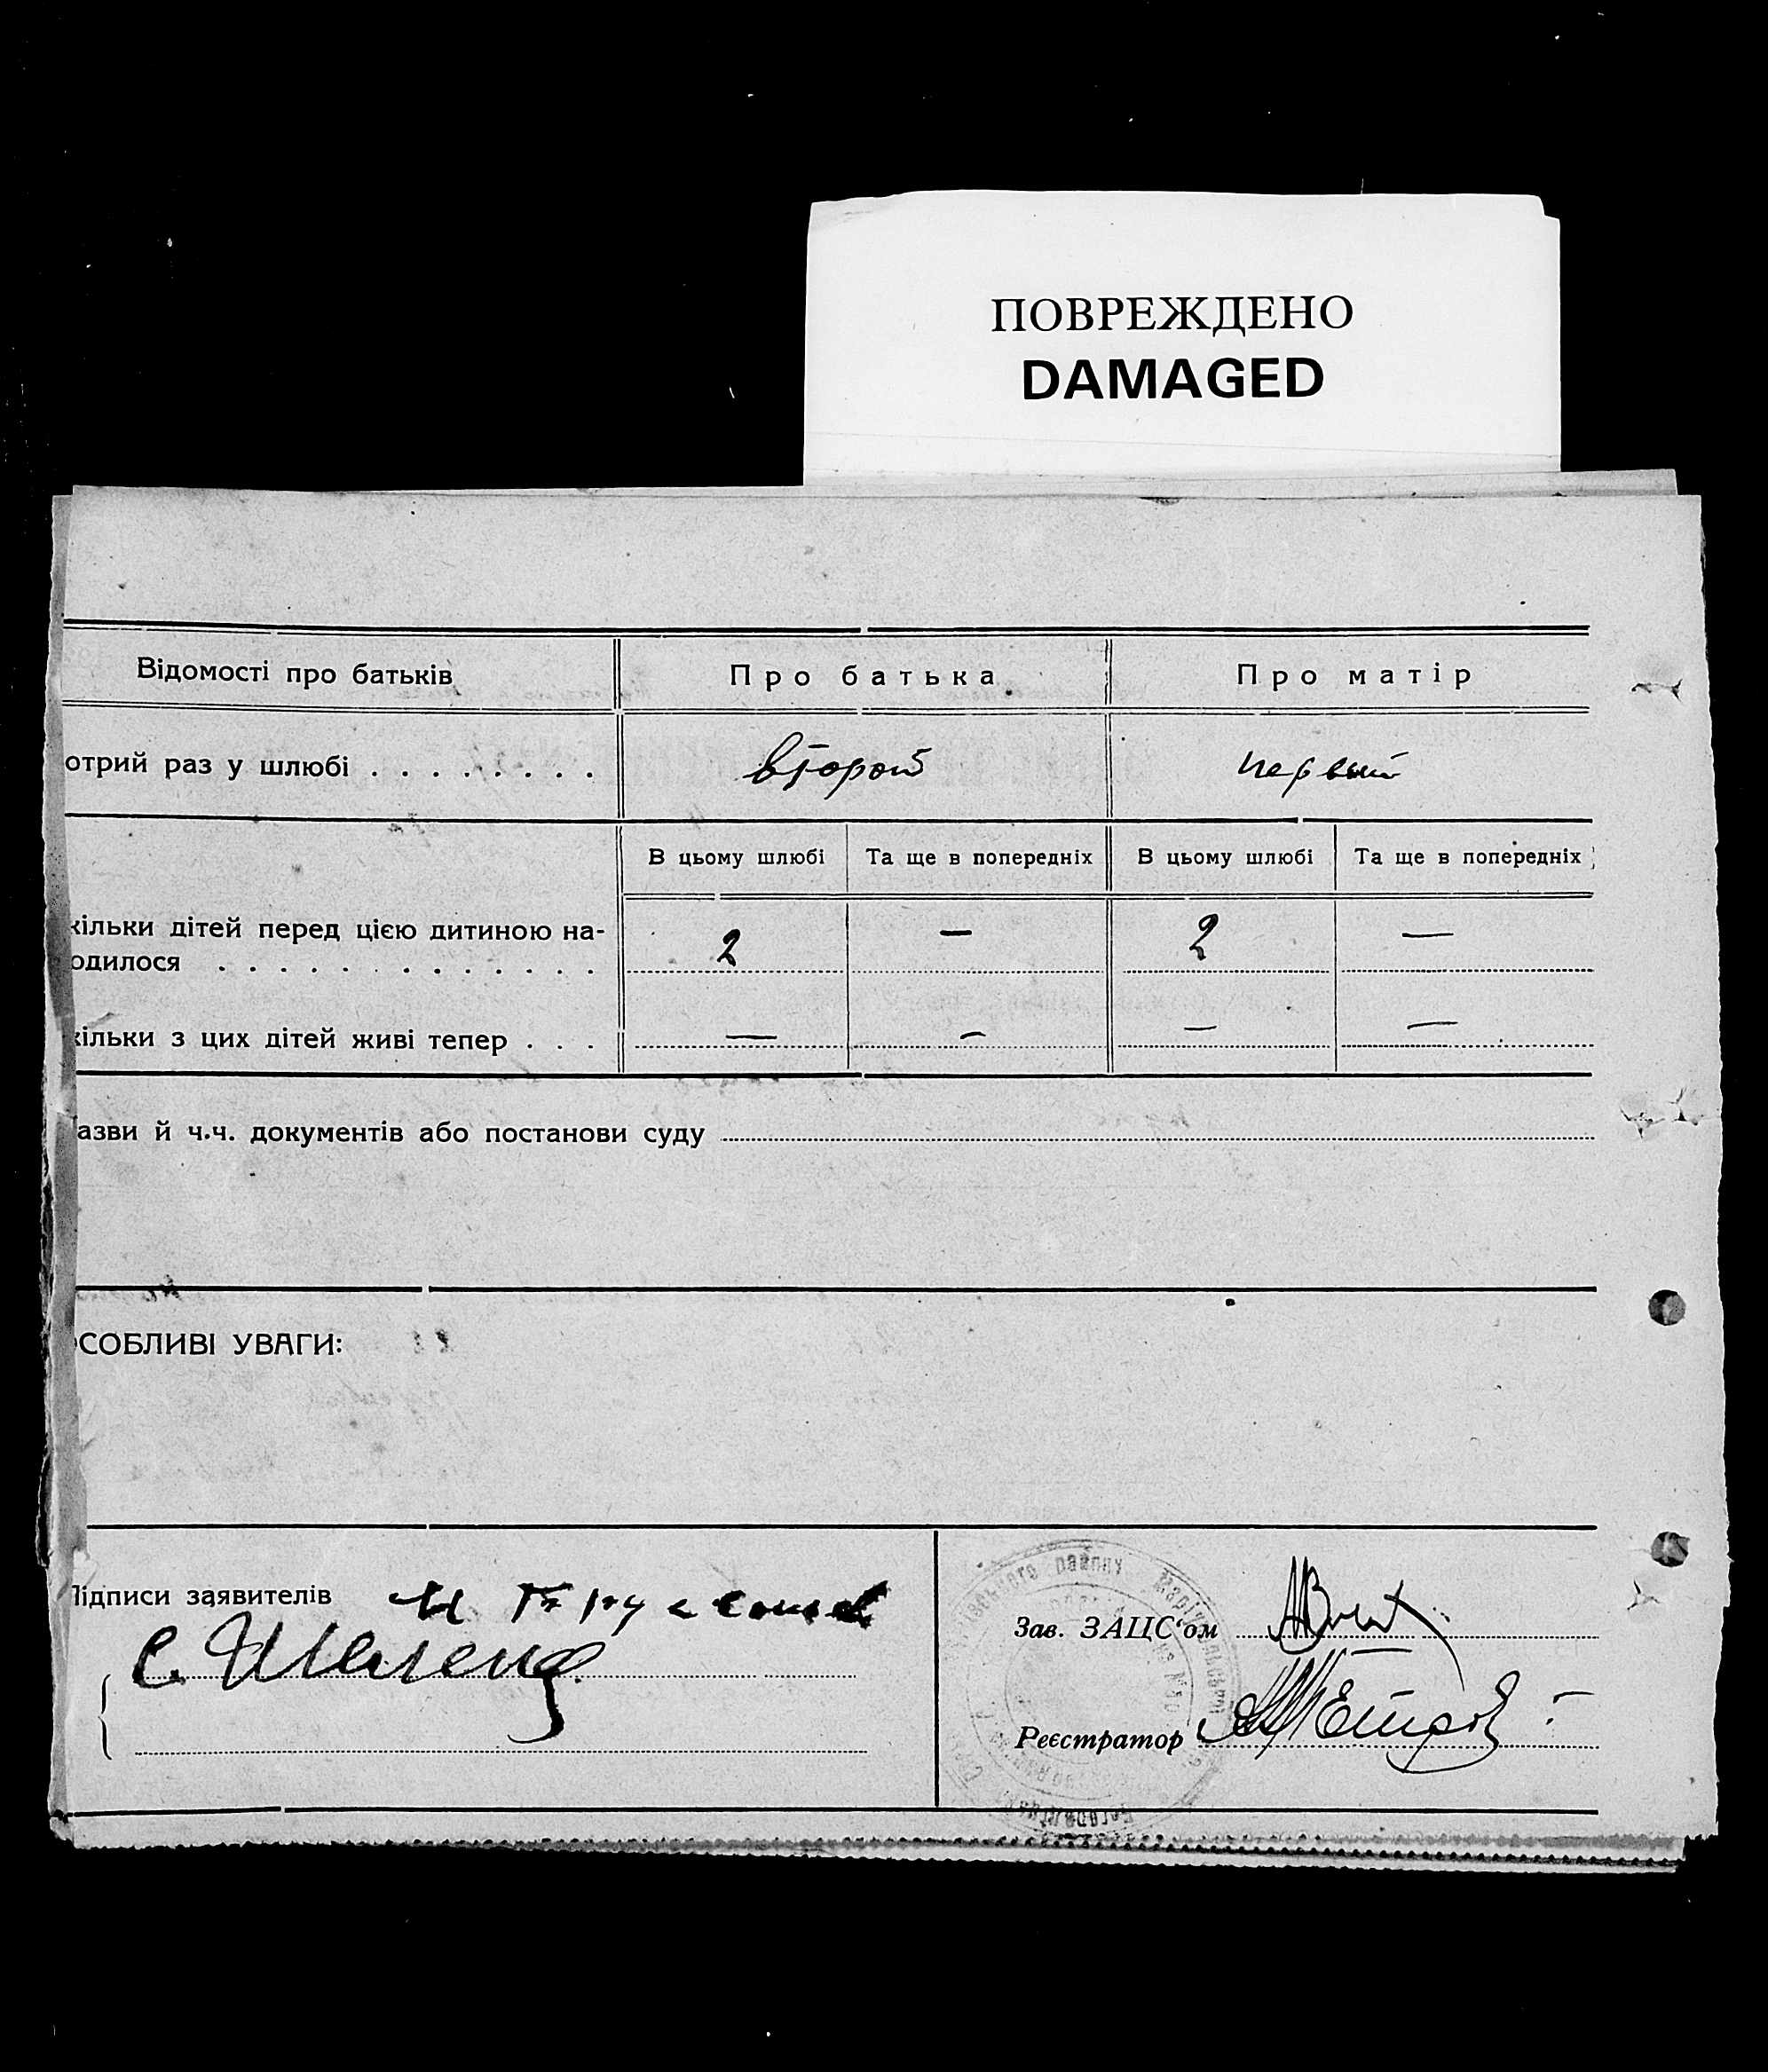 ПОВРЕЖДЕНО
DAMAGED
Відомості про батьків
Про батька
Про матір
отрий раз у шлюбі . . . . . . . .
второй
первый
В цьому шлюбі
Та ще в попередніх
В цьому шлюбі
Та ще в попередніх
кільки дітей перед цією дитиною на-
одилося . . . . . . . . . . . . .
2
—
2
—
кільки з цих дітей живі тепер . . .
—
—
—
—
азви й ч.ч. документів або постанови суду
ОСОБЛИВІ УВАГИ:
Підписи заявителів
С.
Зав. ЗАЦС'ом
Реєстратор
району